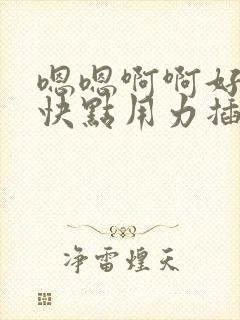 嗯嗯啊啊好
快點用力插
净雷煌天